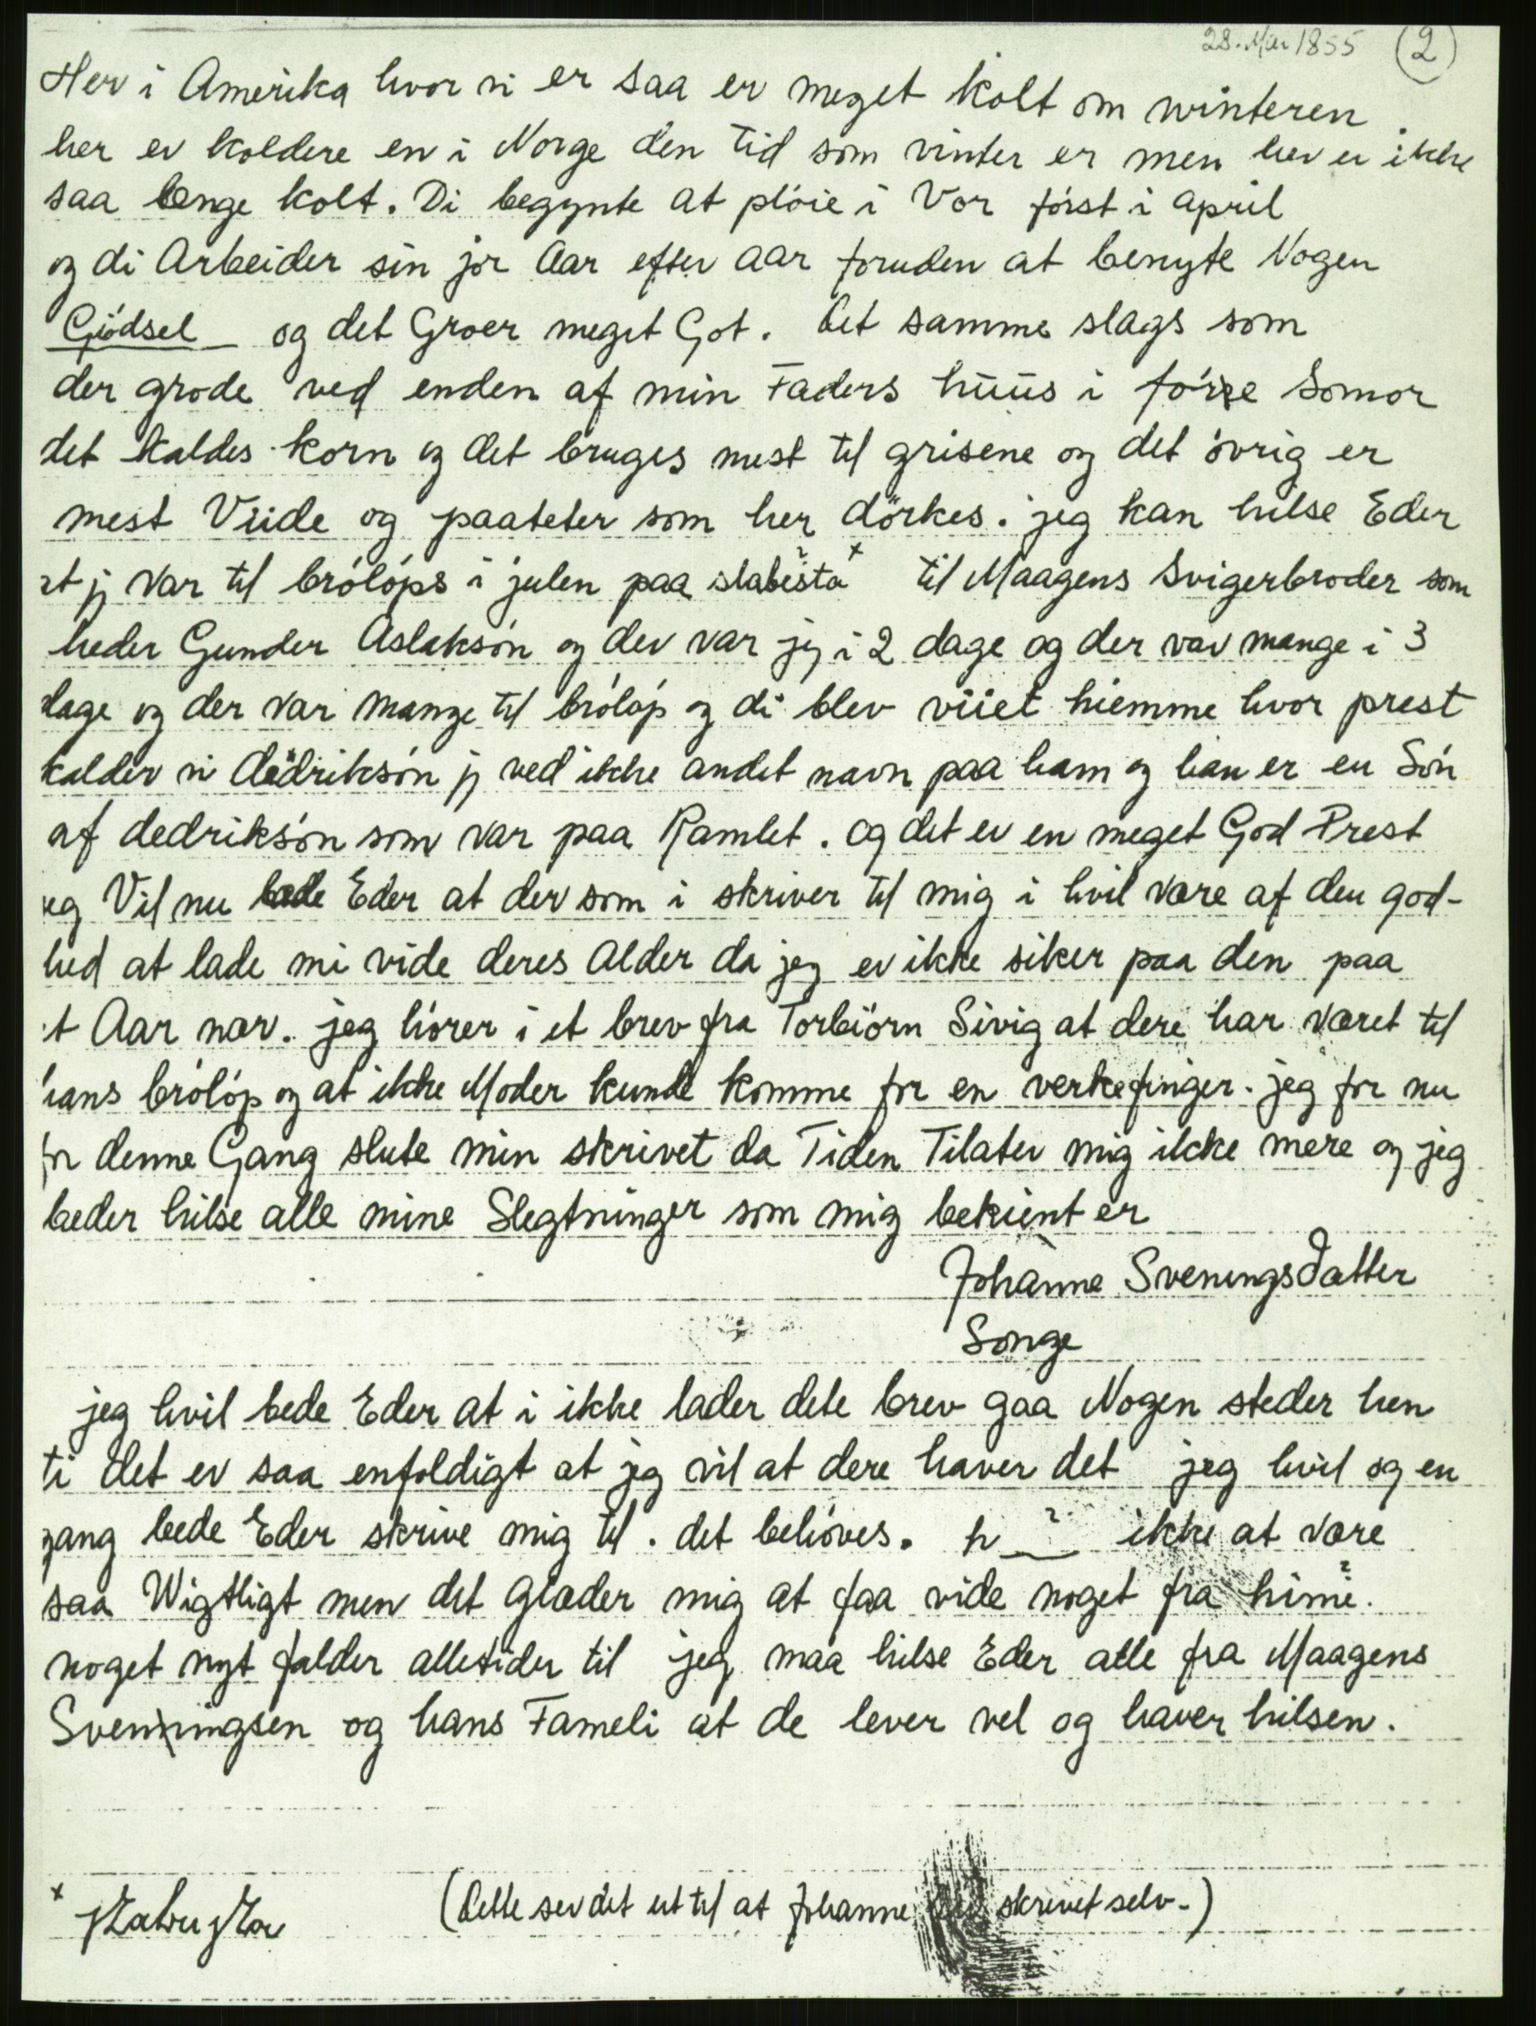 28. Mai 1855 (2)
Her i Amerika hvor vi er saa er meget kolt om winteren
her er koldere en i Norge den tid som vinter er men her er ikke
saa længe kolt. Di begynte at plóie i Vor fórst i April
og di Arbeider sin jor Aar efter Aar foruden at benyte Nogen
Gjódsel og det Groer meget Got. Det samme slags som
der grode ved enden af min Faders huus i fórre Somor
det kaldes korn og det bruges mest til grisene og det óvrig er
mest Viide og paateter som her dörkes. jeg kan hilse Eder
at jj var til brólóps i julen paa slabista ? x til Maagens Svigerbroder som
heder Gunder Aslaksón og der var jej i 2 dage og der var mange i 3
dage og der var mange til brólóp og di blev viiet hiemme hvor prest
kalder vi dedriksón jj ved ikke andet navn paa ham og han er en Són
af dedriksón som var paa Ramlet. og det er en meget God Prest
jeg Vil nu bede Eder at der som i skriver til mig i hvil være af den god-
hed at lade mi vide deres Alder da jeg er ikke siker paa den paa
et Aar nær. jeg hiórer i et brev fra Torbiörn Sivig at dere har været til
hans brólóp og at ikke Moder kunde komme for en verkefinger. jeg for nu
for denne Gang slute min skrivet da Tiden Tilater mig ikke mere og jeg
beder hilse alle mine Slegtninger som mig bekient er
Johanne Sveningsdatter
Songe
jeg hvil bede Eder at i ikke lader dete brev gaa Nogen steder hen
ti det er saa enfoldigt at jeg vil at dere haver det jeg hvil og en
gang bede Eder skrive mig til. det behóves. h ? ikke at være
saa Wigtligt men det Glæder mig at faa vide noget fra himi ?.
noget nyt falder alletider til jeg maa hilse Eder alle fra Maagens
Svenningsen og hans Fameli at de lever vel og haver hilsen.
x
(Dette ser det ut til at Johanne skrevet selv-)